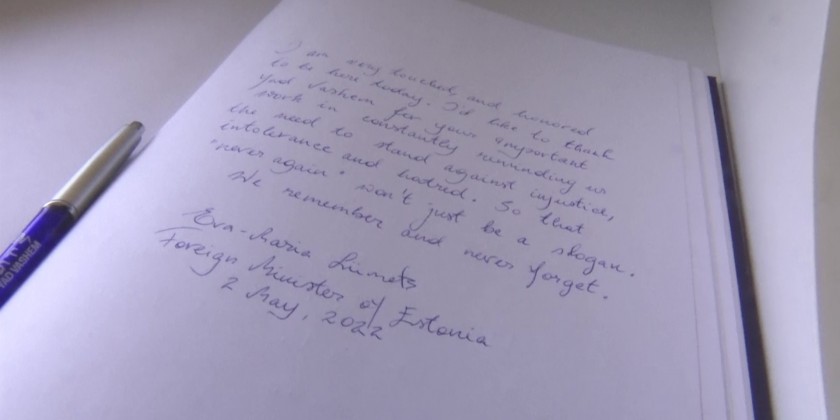 I am very touched, and honored
to be here today. I'd like to thank
Yad Vashem for your important
work in constantly reminding us
the need to stand against injustice,
intolerance and hatred. So that
"never again" won't just be a slogan.
We remember and never forget.
Eva-Maria Liimets
Foreign Minister of Estonia
2 May, 2022
YAD VASHEM